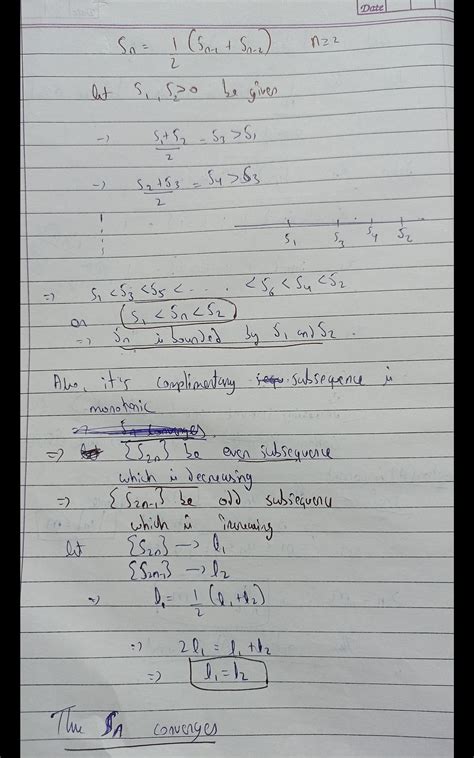 Date
Sₙ = 1/2 (Sₙ₋₁ + Sₙ₋₂) n≥2
let S₁, S₂>0 be given
→ (S₁+S₂)/2 = S₃ > S₁
→ (S₂+S₃)/2 = S₄ > S₃
S₁ S₃ S₄ S₂
⇒ S₁ < S₃ < S₅ < .... < S₆ < S₄ < S₂
or S₁ < Sₙ < S₂
⇒ Sₙ is bounded by S₁ and S₂.
Also, it's complimentary subsequence is
monotonic
⇒ Sₙ converges.
⇒ let {S₂ₙ} be even subsequence
which is decreasing
⇒ {S₂ₙ₋₁} be odd subsequence
which is increasing
let {S₂ₙ} → l₁
{S₂ₙ₋₁} → l₂
⇒ l₁ = 1/2 (l₁+l₂)
⇒ 2l₁ = l₁ + l₂
⇒ l₁ = l₂
Thus Sₙ converges